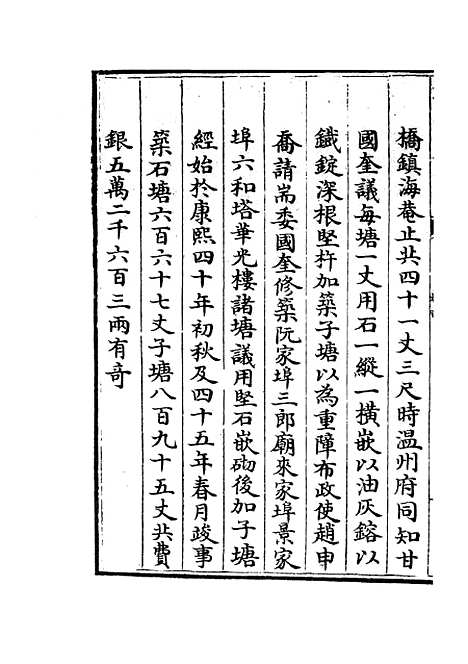 橋鎮海菴止共四十一丈三尺時温州府同知甘
國奎議每塘一丈用石一縱一橫嵌以油灰鎔以
鐵錠深根堅杵加築子塘以為重障布政使趙申
喬請耑委國奎修築阮家埠三郎廟來家埠景家
埠六和塔華光樓諸塘議用堅石嵌砌後加子塘
經始於康熙四十年初秋及四十五年春月竣事
築石塘六百六十七丈子塘八百九十五丈共費
銀五萬二千六百三兩有奇